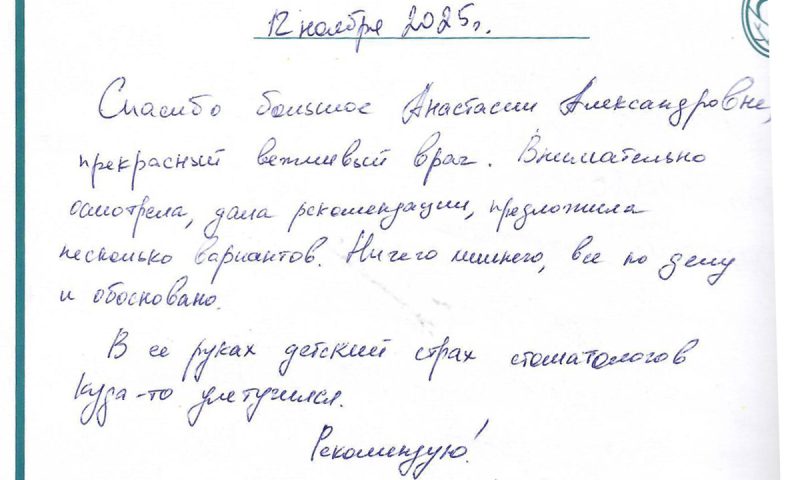 12 ноября 2025г.
Спасибо большое Анастасии Александровне,
прекрасный вежливый врач. Внимательно
осмотрела, дала рекомендации, предложила
несколько вариантов. Ничего лишнего, все по делу
и обосновано.
В ее руках детский страх стоматологов
куда-то улетучился.
Рекомендую!